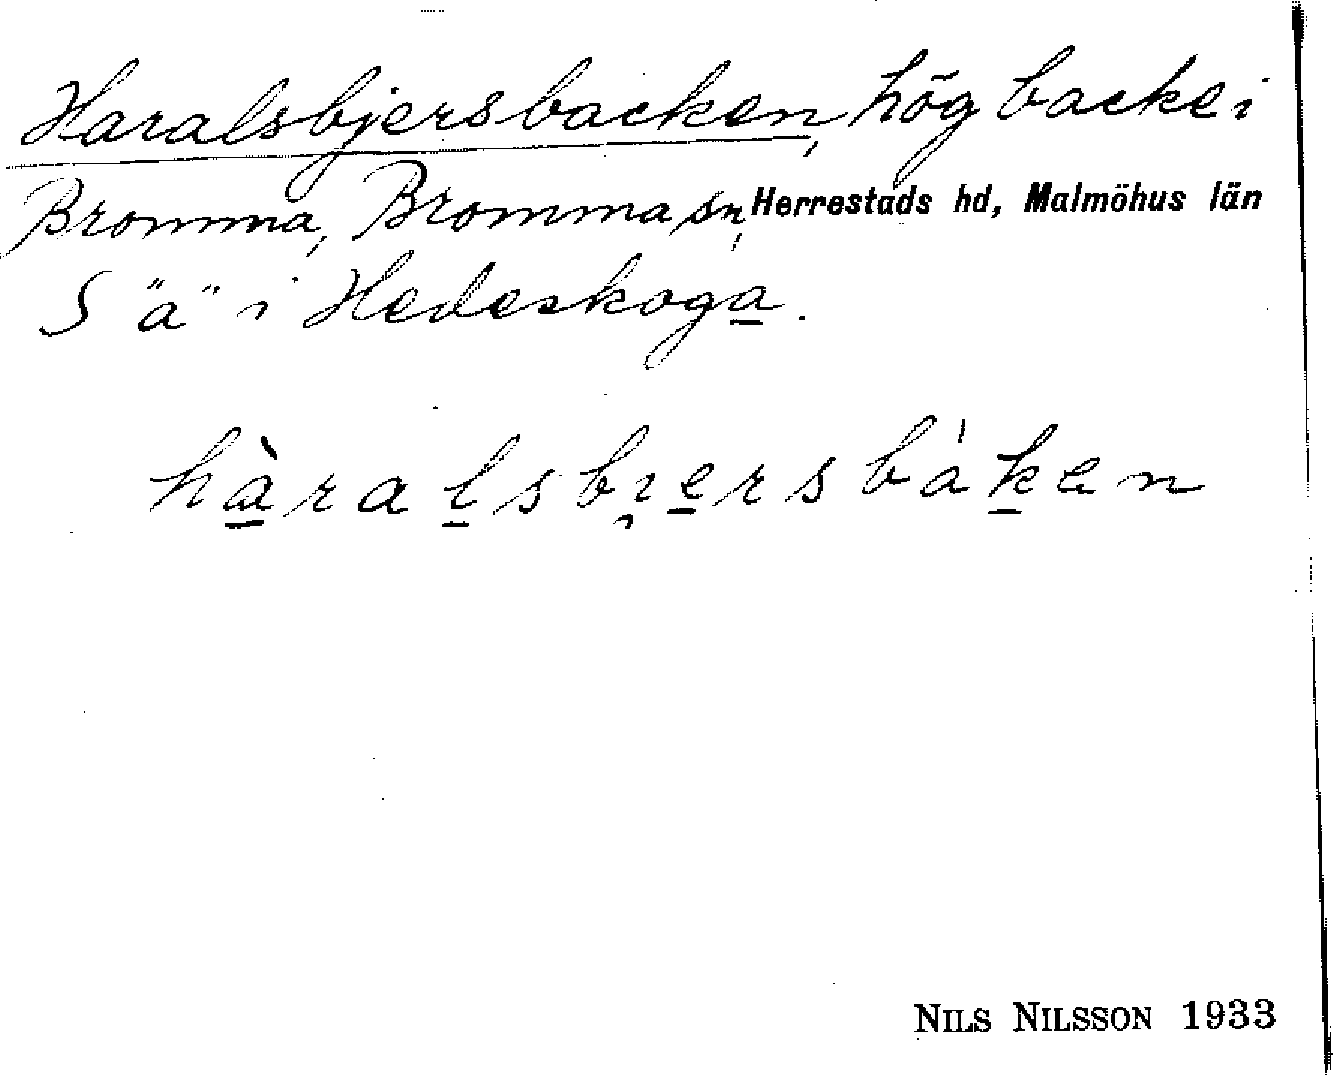 Haralsbjersbacken, hög backe i
Bromma, Bromma sn, Herrestads hd, Malmöhus län
S "a" i Hedeskoga.
hàralsbi̯ersbáken
NILS NILSSON 1933